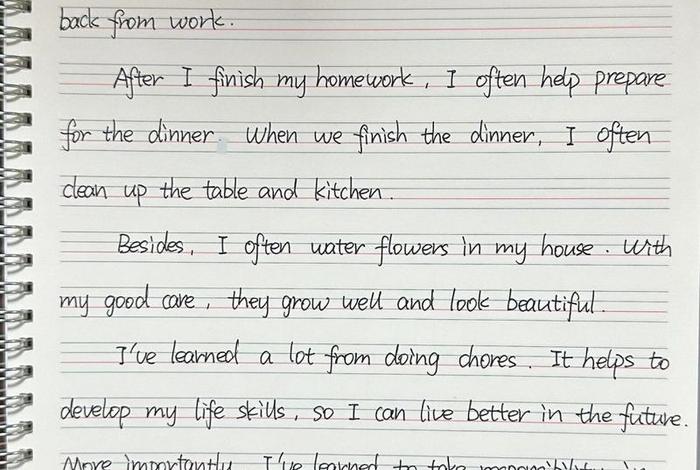 back from work.
After I finish my homework, I often help prepare
for the dinner. When we finish the dinner, I often
clean up the table and kitchen.
Besides, I often water flowers in my house. With
my good care, they grow well and look beautiful.
I've learned a lot from doing chores. It helps to
develop my life skills, so I can live better in the future.
More importantly, I've learned to take responsibility